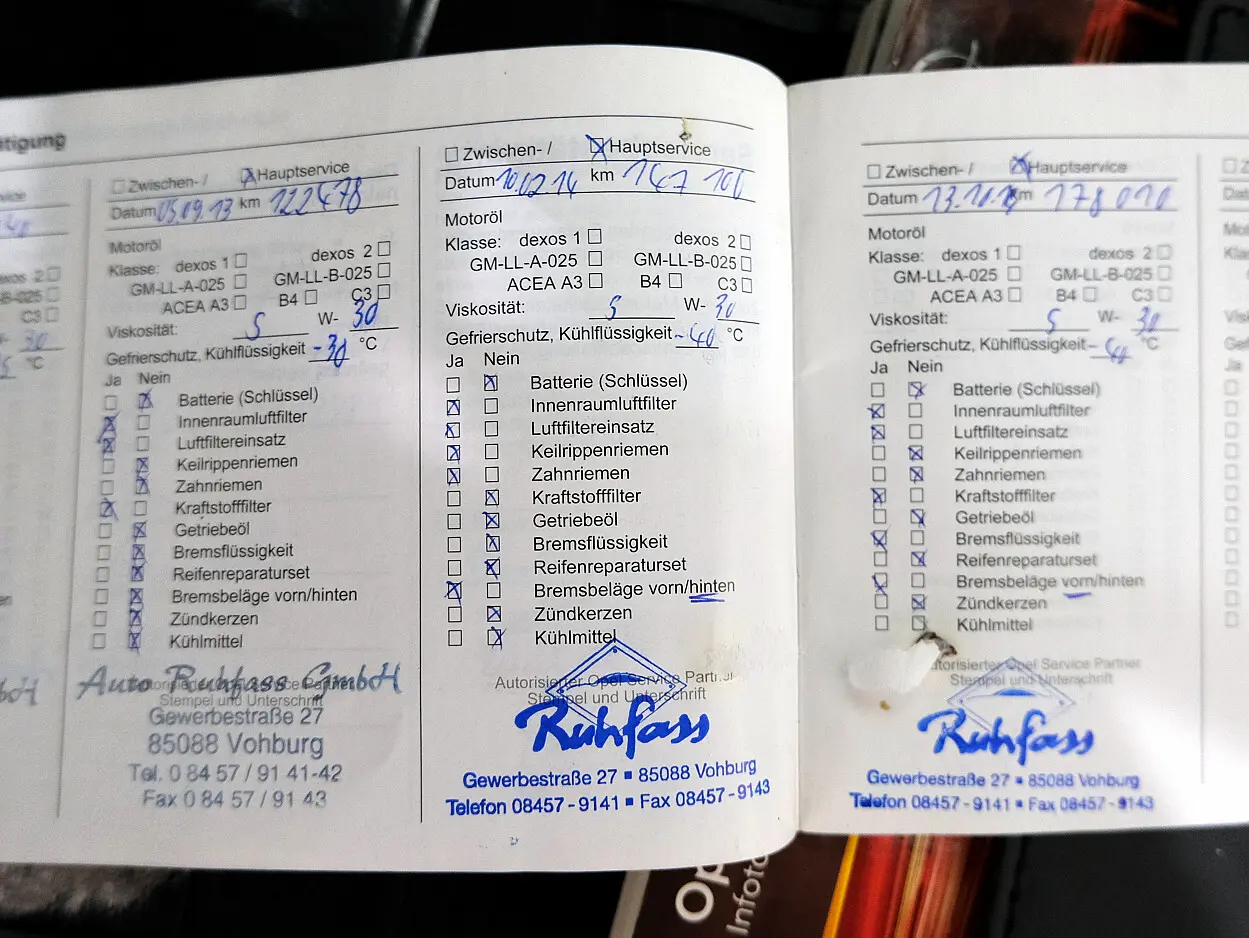 tigung
Zwischen- / Hauptservice
Datum 05.09.13 km 122478
Motoröl
Klasse: dexos 1 dexos 2
GM-LL-A-025 GM-LL-B-025
ACEA A3 B4 C3
Viskosität: 5 W- 30
Gefrierschutz, Kühlflüssigkeit -30 °C
Ja Nein
Batterie (Schlüssel)
Innenraumluftfilter
Luftfiltereinsatz
Keilrippenriemen
Zahnriemen
Kraftstofffilter
Getriebeöl
Bremsflüssigkeit
Reifenreparaturset
Bremsbeläge vorn/hinten
Zündkerzen
Kühlmittel
Auto Ruhfass GmbH
Autorisierter Opel Service Partner
Stempel und Unterschrift
Gewerbestraße 27
85088 Vohburg
Tel. 0 84 57 / 91 41-42
Fax 0 84 57 / 91 43
Zwischen- / Hauptservice
Datum 10.02.14 km 147 100
Motoröl
Klasse: dexos 1 dexos 2
GM-LL-A-025 GM-LL-B-025
ACEA A3 B4 C3
Viskosität: 5 W- 30
Gefrierschutz, Kühlflüssigkeit -40 °C
Ja Nein
Batterie (Schlüssel)
Innenraumluftfilter
Luftfiltereinsatz
Keilrippenriemen
Zahnriemen
Kraftstofffilter
Getriebeöl
Bremsflüssigkeit
Reifenreparaturset
Bremsbeläge vorn/hinten
Zündkerzen
Kühlmittel
Autorisierter Opel Service Partner
Stempel und Unterschrift
Ruhfass
Gewerbestraße 27 ▪ 85088 Vohburg
Telefon 08457 - 9141 ▪ Fax 08457 - 9143
Zwischen- / Hauptservice
Datum km 178 010
Motoröl
Klasse: dexos 1 dexos 2
GM-LL-A-025 GM-LL-B-025
ACEA A3 B4 C3
Viskosität: 5 W- 30
Gefrierschutz, Kühlflüssigkeit -40 °C
Ja Nein
Batterie (Schlüssel)
Innenraumluftfilter
Luftfiltereinsatz
Keilrippenriemen
Zahnriemen
Kraftstofffilter
Getriebeöl
Bremsflüssigkeit
Reifenreparaturset
Bremsbeläge vorn/hinten
Zündkerzen
Kühlmittel
utorisierter Opel Service Partner
Stempel und Unterschrift
Ruhfass
Gewerbestraße 27 ▪ 85088 Vohburg
Telefon 08457 - 9141 ▪ Fax 08457 - 9143
Op
Infot